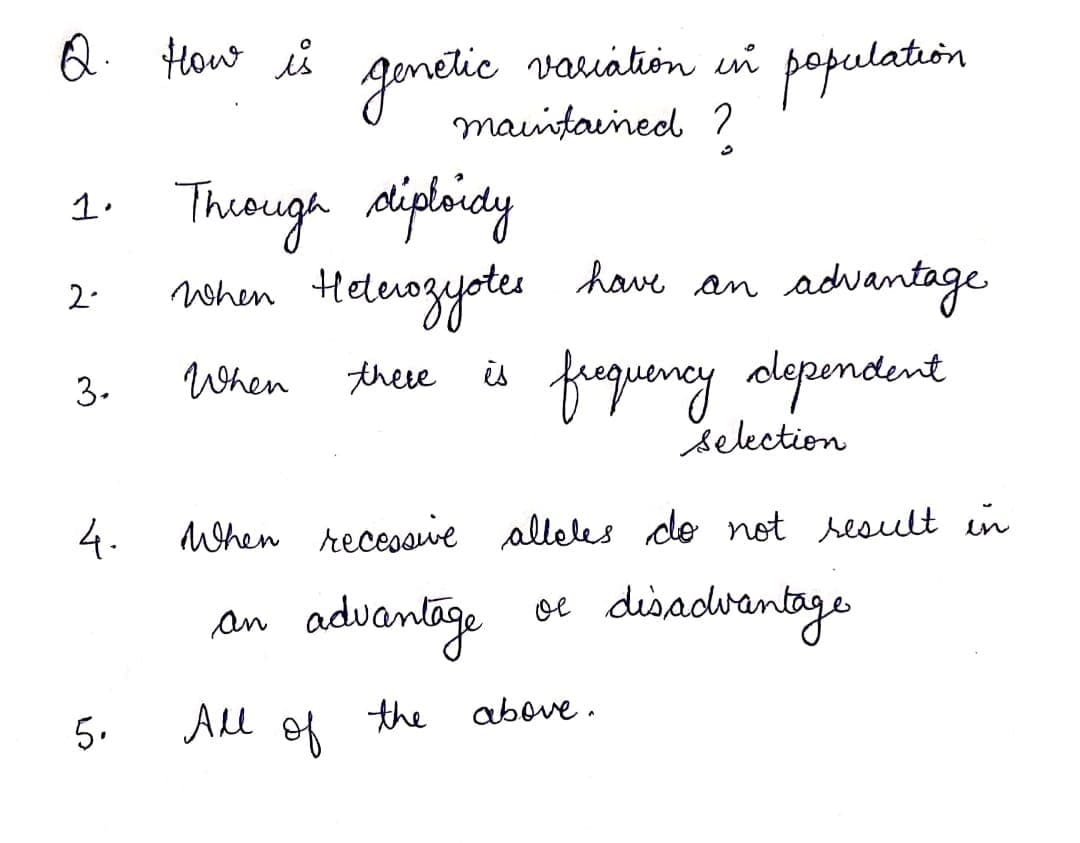 Q. How is genetic variation in population
maintained ?
1. Through diploidy
2. When Heterozyotes have an advantage
3. When there is frequency dependent
selection
4. When recessive alleles do not result in
an advantage or disadvantage
5. All of the above.